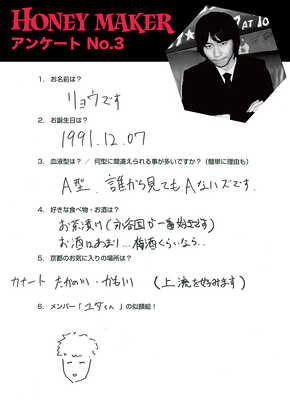 HONEY MAKER
アンケート No.3
AT 10
1. お名前は?
リョウです
2. お誕生日は?
1991.12.07
3. 血液型は? / 何型に間違えられる事が多いですか?(簡単に理由も)
A型、誰から見てもAなズです。
4. 好きな食べ物・お酒は?
お茶漬け(永谷園が一番好きです)
お酒はあまり...梅酒くらいなら..
5. 京都のお気に入りの場所は?
カナート たかの川・かも川 (上流を好みます)
6. メンバー「ユダくん」の似顔絵!